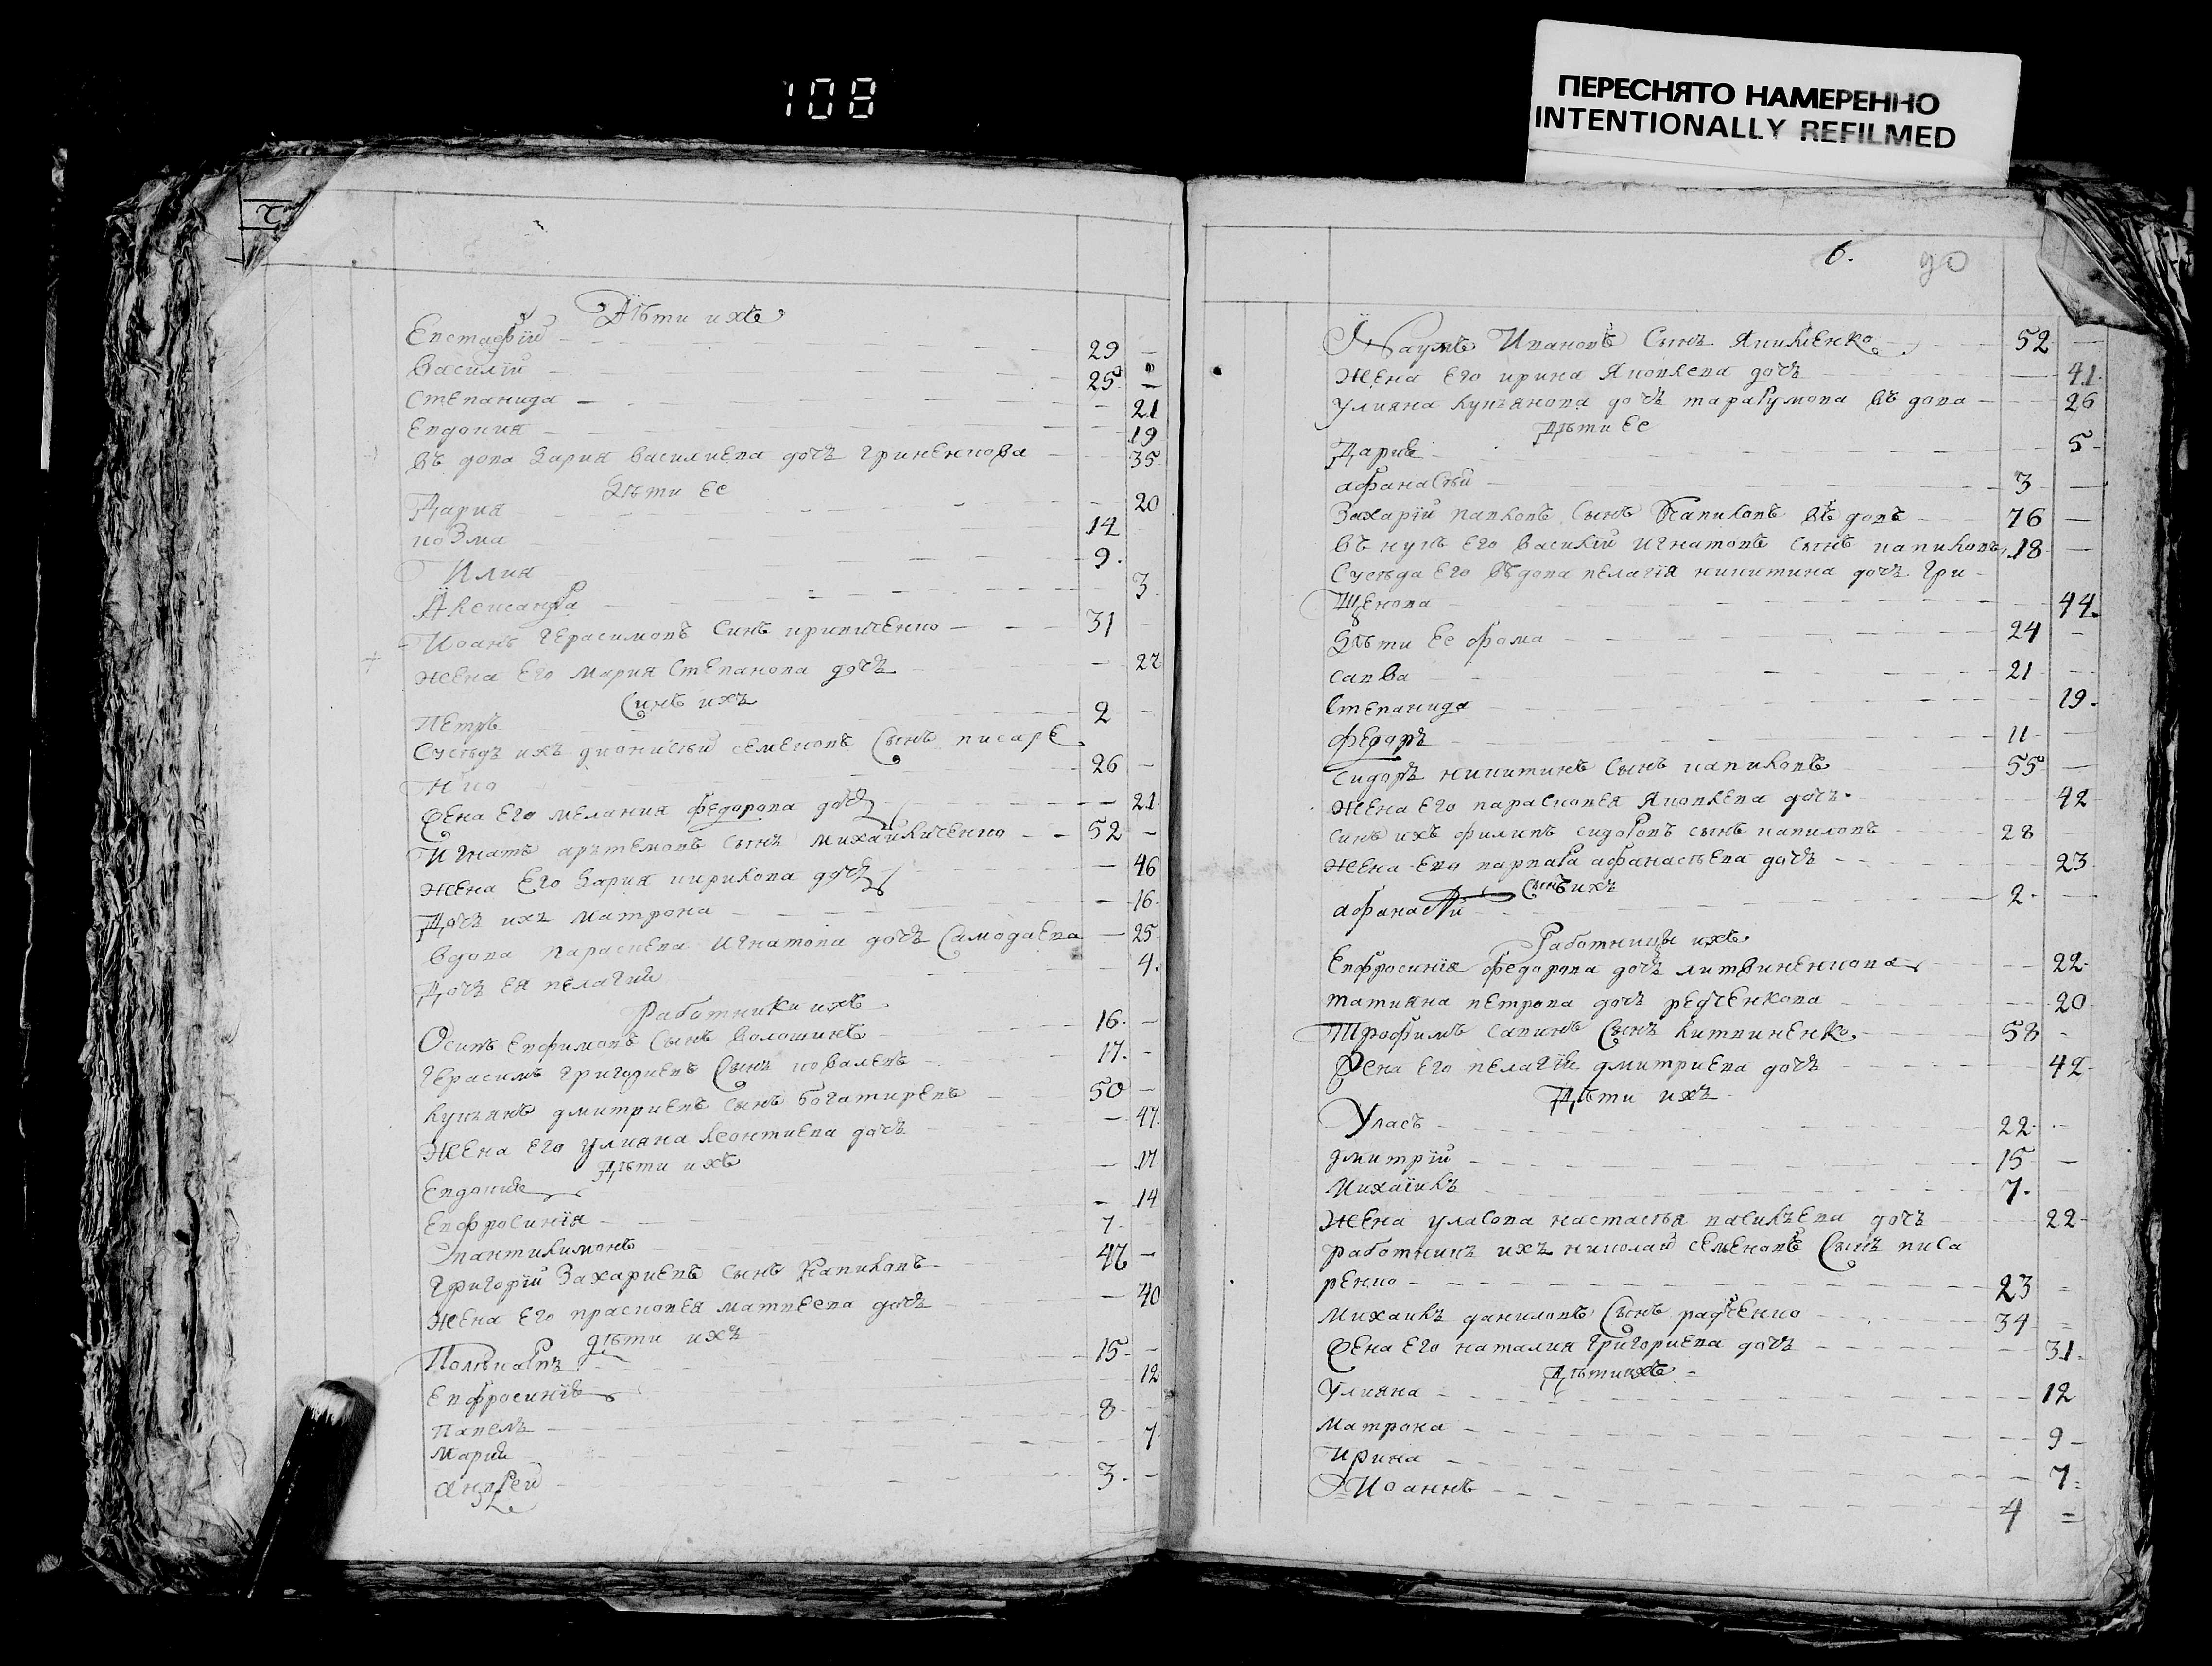 108
ПЕРЕСНЯТО НАМЕРЕННО
INTENTIONALLY REFILMED
Дѣти ихъ
Евстафїй 29
Василїй 25
Степанида 21
Евдокия 19
Въдова Дария Василиева дочъ Гриненкова 35
Дѣти ее
Дария 20
Козма 14
Илия 9
Александра 3
Иоанъ Герасимовъ синъ 31
жена его Мария Степанова дочъ 22
Синъ ихъ
Петръ 2
Сусѣдъ ихъ Дионисѣй Семеновъ Сынъ Писаре
нко 26
Жена его Мелания Федорова дочъ 21
Игнатъ Арътемовъ сынъ Михайличенко 52
жена Его Дария Кирилова дочъ 46
Дочъ ихъ Матрона 16
Вдова Параскева Игнатова дочъ Самодаева 25
Дочъ ея Пелагия 4
Работники ихъ
Осипъ Евфимовъ Сынъ Волошинъ 16
Герасимъ Григориевъ Сынъ Ковалевъ 17
Кунъянъ Дмитриевъ сынъ Богатиревъ 50
Жена Его Улияна Леонтиева дочъ 47
Дѣти ихъ
Евдокия 17
Евфросинїя 14
Пантилимонъ 7
Григорїй Захариевъ сынъ Папиловъ 47
жена Его Прасковея Матвеева дочъ 40
дѣти ихъ
Поликарпъ 15
Евфросинїя 12
Павелъ 8
Мария 7
Андрей 3
6. 90
Наумъ Ивановъ Сынъ Якименко 52
жена Его Ирина Яковлева дочъ 41
Улияна Кунъянова дочъ Тарарумова въдова 26
Дѣти ее
Дария 5
Афанасѣй 3
Захарїй Павловъ Сынъ Папиловъ въдовъ 76
Внукъ Его Василїй Игнатовъ сынъ Папиловъ 18
Сусѣда Его въдова Пелагїя Никитина дочъ Гри
щенова 44
Дѣти ее Фома 24
Савва 21
Степанида 19
Федоръ 11
Сидоръ Никитинъ Сынъ Папиловъ 55
жена Его Парасковея Яковлева дочъ 42
Синъ ихъ Филипъ Сидоровъ сынъ Папиловъ 28
жена Его Варвара Афанасѣева дочъ 23
Сынъ ихъ
Афанасїй 2
Работници ихъ
Евфросинїя Федорова дочъ Литвиненкова 22
Татияна Петрова дочъ Редченкова 20
Трофимъ Савинъ Сынъ Литвиненко 58
Жена Его Пелагїя Дмитриева дочъ 42
Дѣти ихъ
Уласъ 22
Дмитрїй 15
Михаилъ 7
жена Уласова Настасъя Василъева дочъ 22
Работникъ ихъ Николай Семеновъ Сынъ Писа
ренко 23
Михаилъ Даниловъ Сынъ Радченко 34
Жена Его Наталия Григориева дочъ 31
Дѣти ихъ
Улияна 12
Матрона 9
Ирина 7
Иоаннъ 4